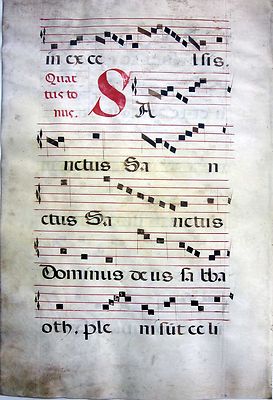 in ex ce lsis.
Quar
tus to
nus.
S A
nctus Sa n
ctus Sa nctus
Dominus deus sa bba
oth. ple ni sūt ce li